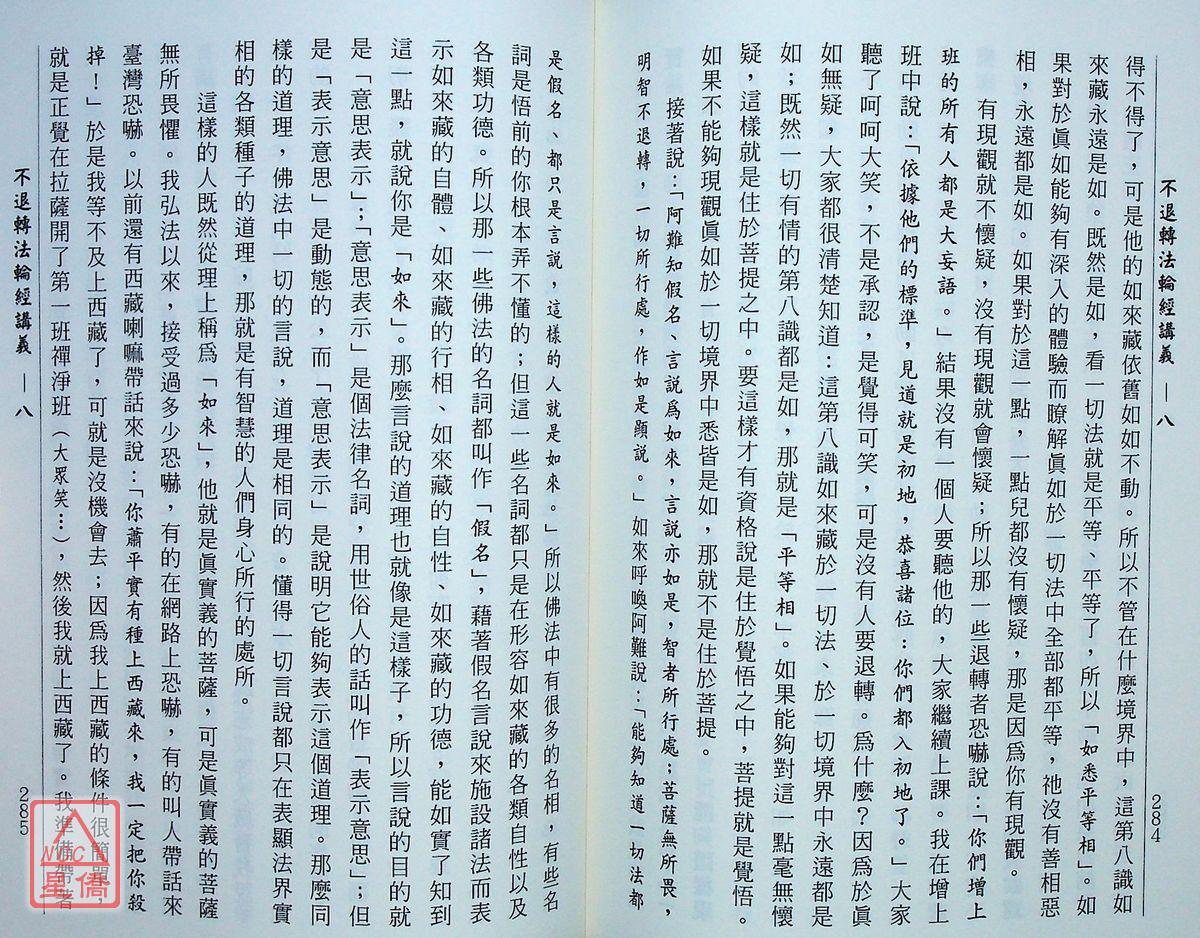 不退轉法輪經講義 — 八
284
得不得了，可是他的如來藏依舊如如不動。所以不管在什麼境界中，這第八識如
來藏永遠是如。既然是如，看一切法就是平等、平等了，所以「如悉平等相」。如
果對於眞如能夠有深入的體驗而瞭解眞如於一切法中全部都平等，祂沒有善相惡
相，永遠都是如。如果對於這一點，一點兒都沒有懷疑，那是因爲你有現觀。
有現觀就不懷疑，沒有現觀就會懷疑；所以那一些退轉者恐嚇說：「你們增上
班的所有人都是大妄語。」結果沒有一個人要聽他的，大家繼續上課。我在增上
班中說：「依據他們的標準，見道就是初地，恭喜諸位：你們都入初地了。」大家
聽了呵呵大笑，不是承認，是覺得可笑，可是沒有人要退轉。爲什麼？因爲於眞
如無疑，大家都很清楚知道：這第八識如來藏於一切法、於一切境界中永遠都是
如；既然一切有情的第八識都是如，那就是「平等相」。如果能夠對這一點毫無懷
疑，這樣就是住於菩提之中。要這樣才有資格說是住於覺悟之中，菩提就是覺悟。
如果不能夠現觀眞如於一切境界中悉皆是如，那就不是住於菩提。
接著說：「阿難知假名、言說爲如來，言說亦如是，智者所行處；菩薩無所畏，
明智不退轉，一切所行處，作如是顯說。」如來呼喚阿難說：「能夠知道一切法都
是假名、都只是言說，這樣的人就是如來。」所以佛法中有很多的名相，有些名
詞是悟前的你根本弄不懂的；但這一些名詞都只是在形容如來藏的各類自性以及
各類功德。所以那一些佛法的名詞都叫作「假名」，藉著假名言說來施設諸法而表
示如來藏的自體、如來藏的行相、如來藏的自性、如來藏的功德，能如實了知到
這一點，就說你是「如來」。那麼言說的道理也就像是這樣子，所以言說的目的就
是「意思表示」；「意思表示」是個法律名詞，用世俗人的話叫作「表示意思」；但
是「表示意思」是動態的，而「意思表示」是說明它能夠表示這個道理。那麼同
樣的道理，佛法中一切的言說，道理是相同的。懂得一切言說都只在表顯法界實
相的各類種子的道理，那就是有智慧的人們身心所行的處所。
這樣的人既然從理上稱爲「如來」，他就是眞實義的菩薩，可是眞實義的菩薩
無所畏懼。我弘法以來，接受過多少恐嚇，有的在網路上恐嚇，有的叫人帶話來
臺灣恐嚇。以前還有西藏喇嘛帶話來說：「你蕭平實有種上西藏來，我一定把你殺
掉！」於是我等不及上西藏了，可就是沒機會去；因爲我上西藏的條件很簡單，
就是正覺在拉薩開了第一班禪淨班（大眾笑…），然後我就上西藏了。我準備帶著
不退轉法輪經講義 — 八
285
NVIC
星僑